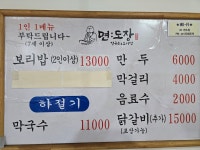 1인 1메뉴
부탁드립니다~
(7세 이상)
면:도장
보리밥(2인이상) 13000
만두 6000
막걸리 4000
하절기
음료수 2000
막국수 11000
닭갈비(추가) 15000
(포장가능)